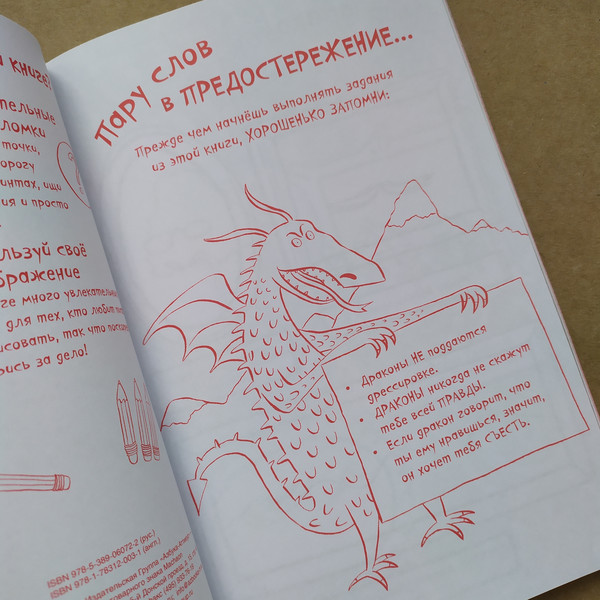 книге?
тельные
ломки
точки,
орогу
интах, ищи
ния и просто
льзуй своё
бражение
ге много увлекательн
для тех, кто любит
исовать, так что
рись за дело!
ISBN 978-5-389-06072-2 (рус.)
ISBN 978-1-78312-003-1 (англ.)
Издательская Группа «Азбука-Аттикус»
товарного знака Machaon
Пару слов
в предостережение...
Прежде чем начнёшь выполнять задания
из этой книги, ХОРОШЕНЬКО ЗАПОМНИ:
• Драконы НЕ поддаются
дрессировке.
• ДРАКОНЫ никогда не скажут
тебе всей ПРАВДЫ.
• Если дракон говорит, что
ты ему нравишься, значит,
он хочет тебя СЪЕСТЬ.